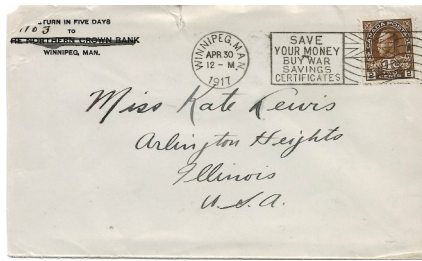 RETURN IN FIVE DAYS
TO
NORTHERN CROWN BANK
WINNIPEG, MAN.
WINNIPEG, MAN.
APR 30
12 - M
1917
SAVE
YOUR MONEY
BUY WAR
SAVINGS
CERTIFICATES
CANADA POSTAGE
Miss Kate Lewis
Arlington Heights
Illinois
U.S.A.